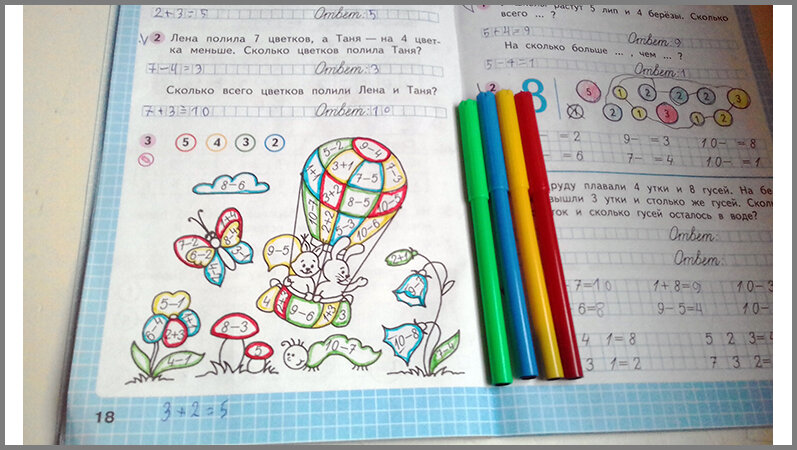 2+3=5 Ответ: 5
2 Лена полила 7 цветков, а Таня — на 4 цвет-
ка меньше. Сколько цветков полила Таня?
7-4=3 Ответ: 3
Сколько всего цветков полили Лена и Таня?
7+3=10 Ответ: 10
3 5 4 3 2
8-6
5-2 9-4
1+1 3+1 7-5 7-3
3+2 8-5 10-5
2+2 5-3 10-6
9-5
7-2 1+4
6-2 8-4
4 9-6 1+3 3
2+1
5-1
6-4 2+3
4-1
8-3
5
10-7
10-8
7-4
18
3+2=5
растут 5 лип и 4 берёзы. Сколько
всего ... ?
5+4=9
Ответ: 9
На сколько больше ... , чем ... ?
5-4=1
Ответ: 1
2 8 5 1 2 2 2 3
2 1 3 1 2
- = 2 9- =3 10- =8
- = 6 7- =4 10- =1
руду плавали 4 утки и 8 гусей. На бе
вышли 3 утки и столько же гусей. Скол
ток и сколько гусей осталось в воде?
Ответ:
Ответ:
-7=10 1+8=9 10-3
-6=8 9-5=4 10-
4 1=8 5 2 3=
3 1=2 7 3 2=